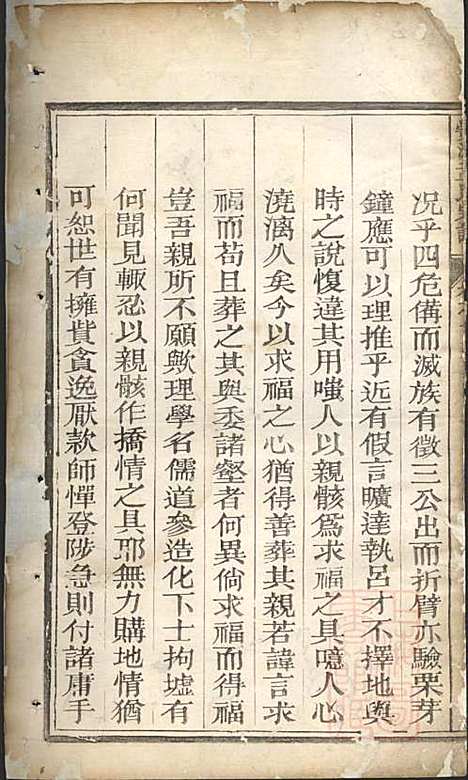 况乎四危備而滅族有徵三公出而折臂亦驗栗芽
鐘應可以理推乎近有假言曠達執呂才不擇地與
時之說愎違其用嗤人以親骸為求福之具噫人心
澆漓久矣今以求福之心猶得善葬其親若諱言求
福而苟且葬之其與委諸壑者何異倘求福而得福
豈吾親所不願歟理學名儒道參造化下士拘墟有
何聞見輙忍以親骸作撟情之具邪無力購地情猶
可恕世有擁貲貪逸厭款師憚登陟急則付諸庸手